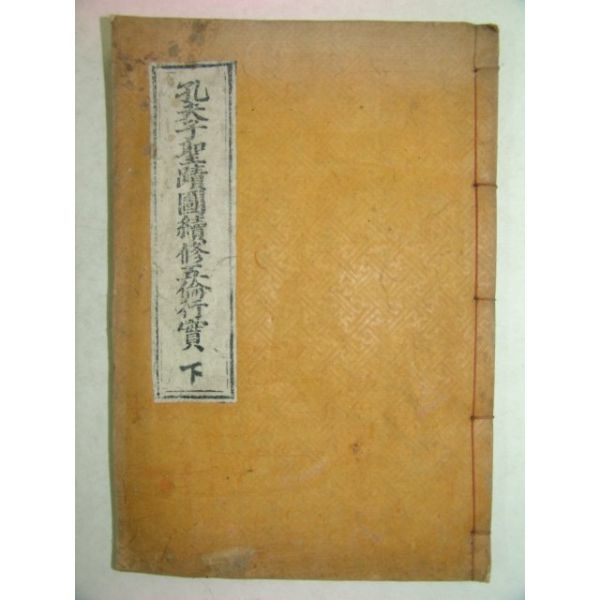 孔夫子聖蹟圖續修五倫行實 下